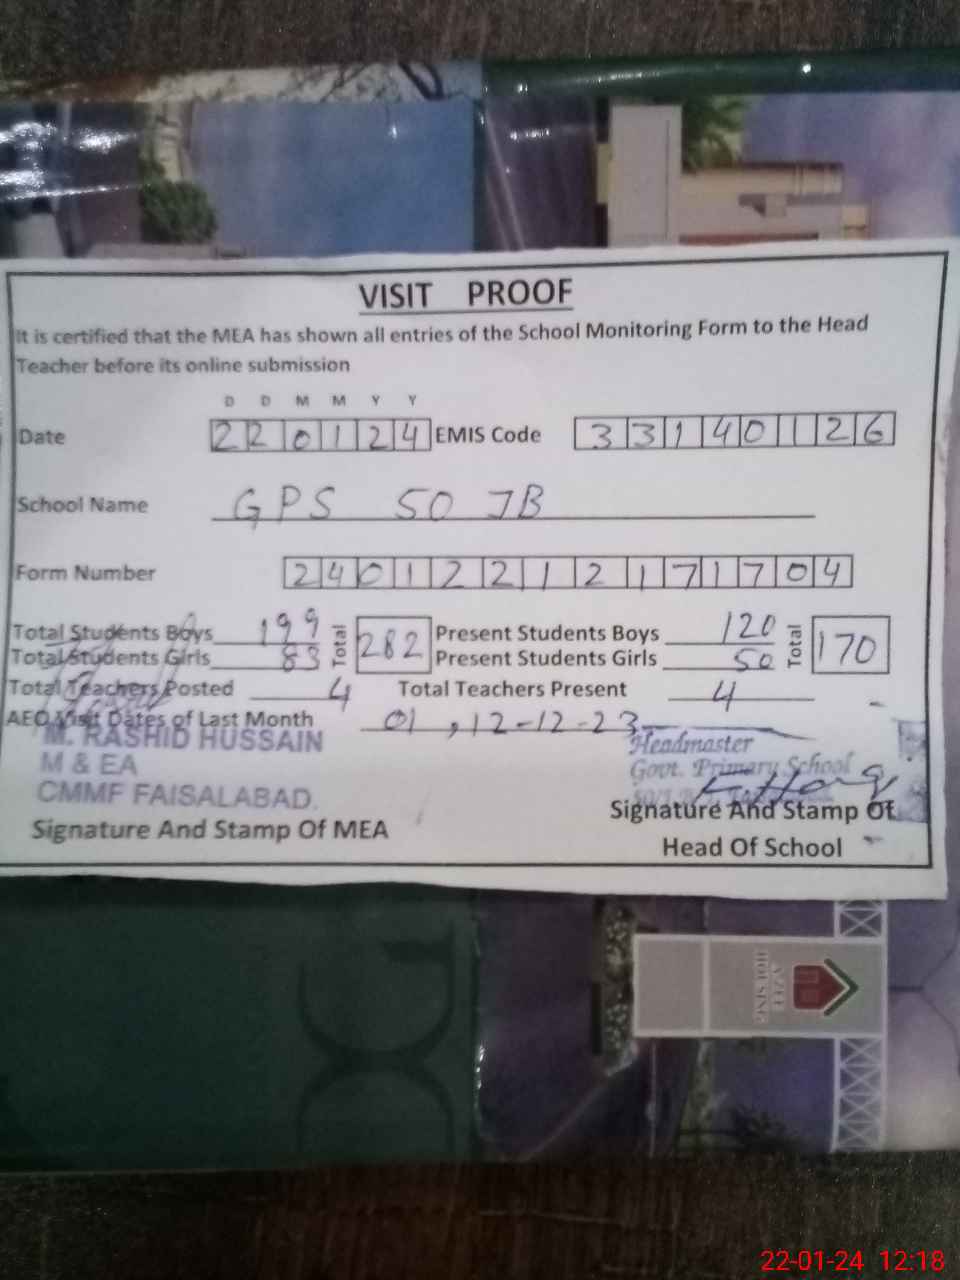 VISIT PROOF
It is certified that the MEA has shown all entries of the School Monitoring Form to the Head
Teacher before its online submission
D D M M Y Y
Date 220124 EMIS Code 33140126
School Name GPS 50 JB
Form Number 24012212171704
Total Students Boys 199 Total 282 Present Students Boys 120 Total 170
Total Students Girls 83 Present Students Girls 50
Total Teachers Posted 4 Total Teachers Present 4
AEO Visit Dates of Last Month 01, 12-12-23
M. RASHID HUSSAIN Headmaster
M & EA Govt. Primary School
CMMF FAISALABAD.
Signature And Stamp Of MEA Signature And Stamp Of
Head Of School
HOUSING
22-01-24 12:18